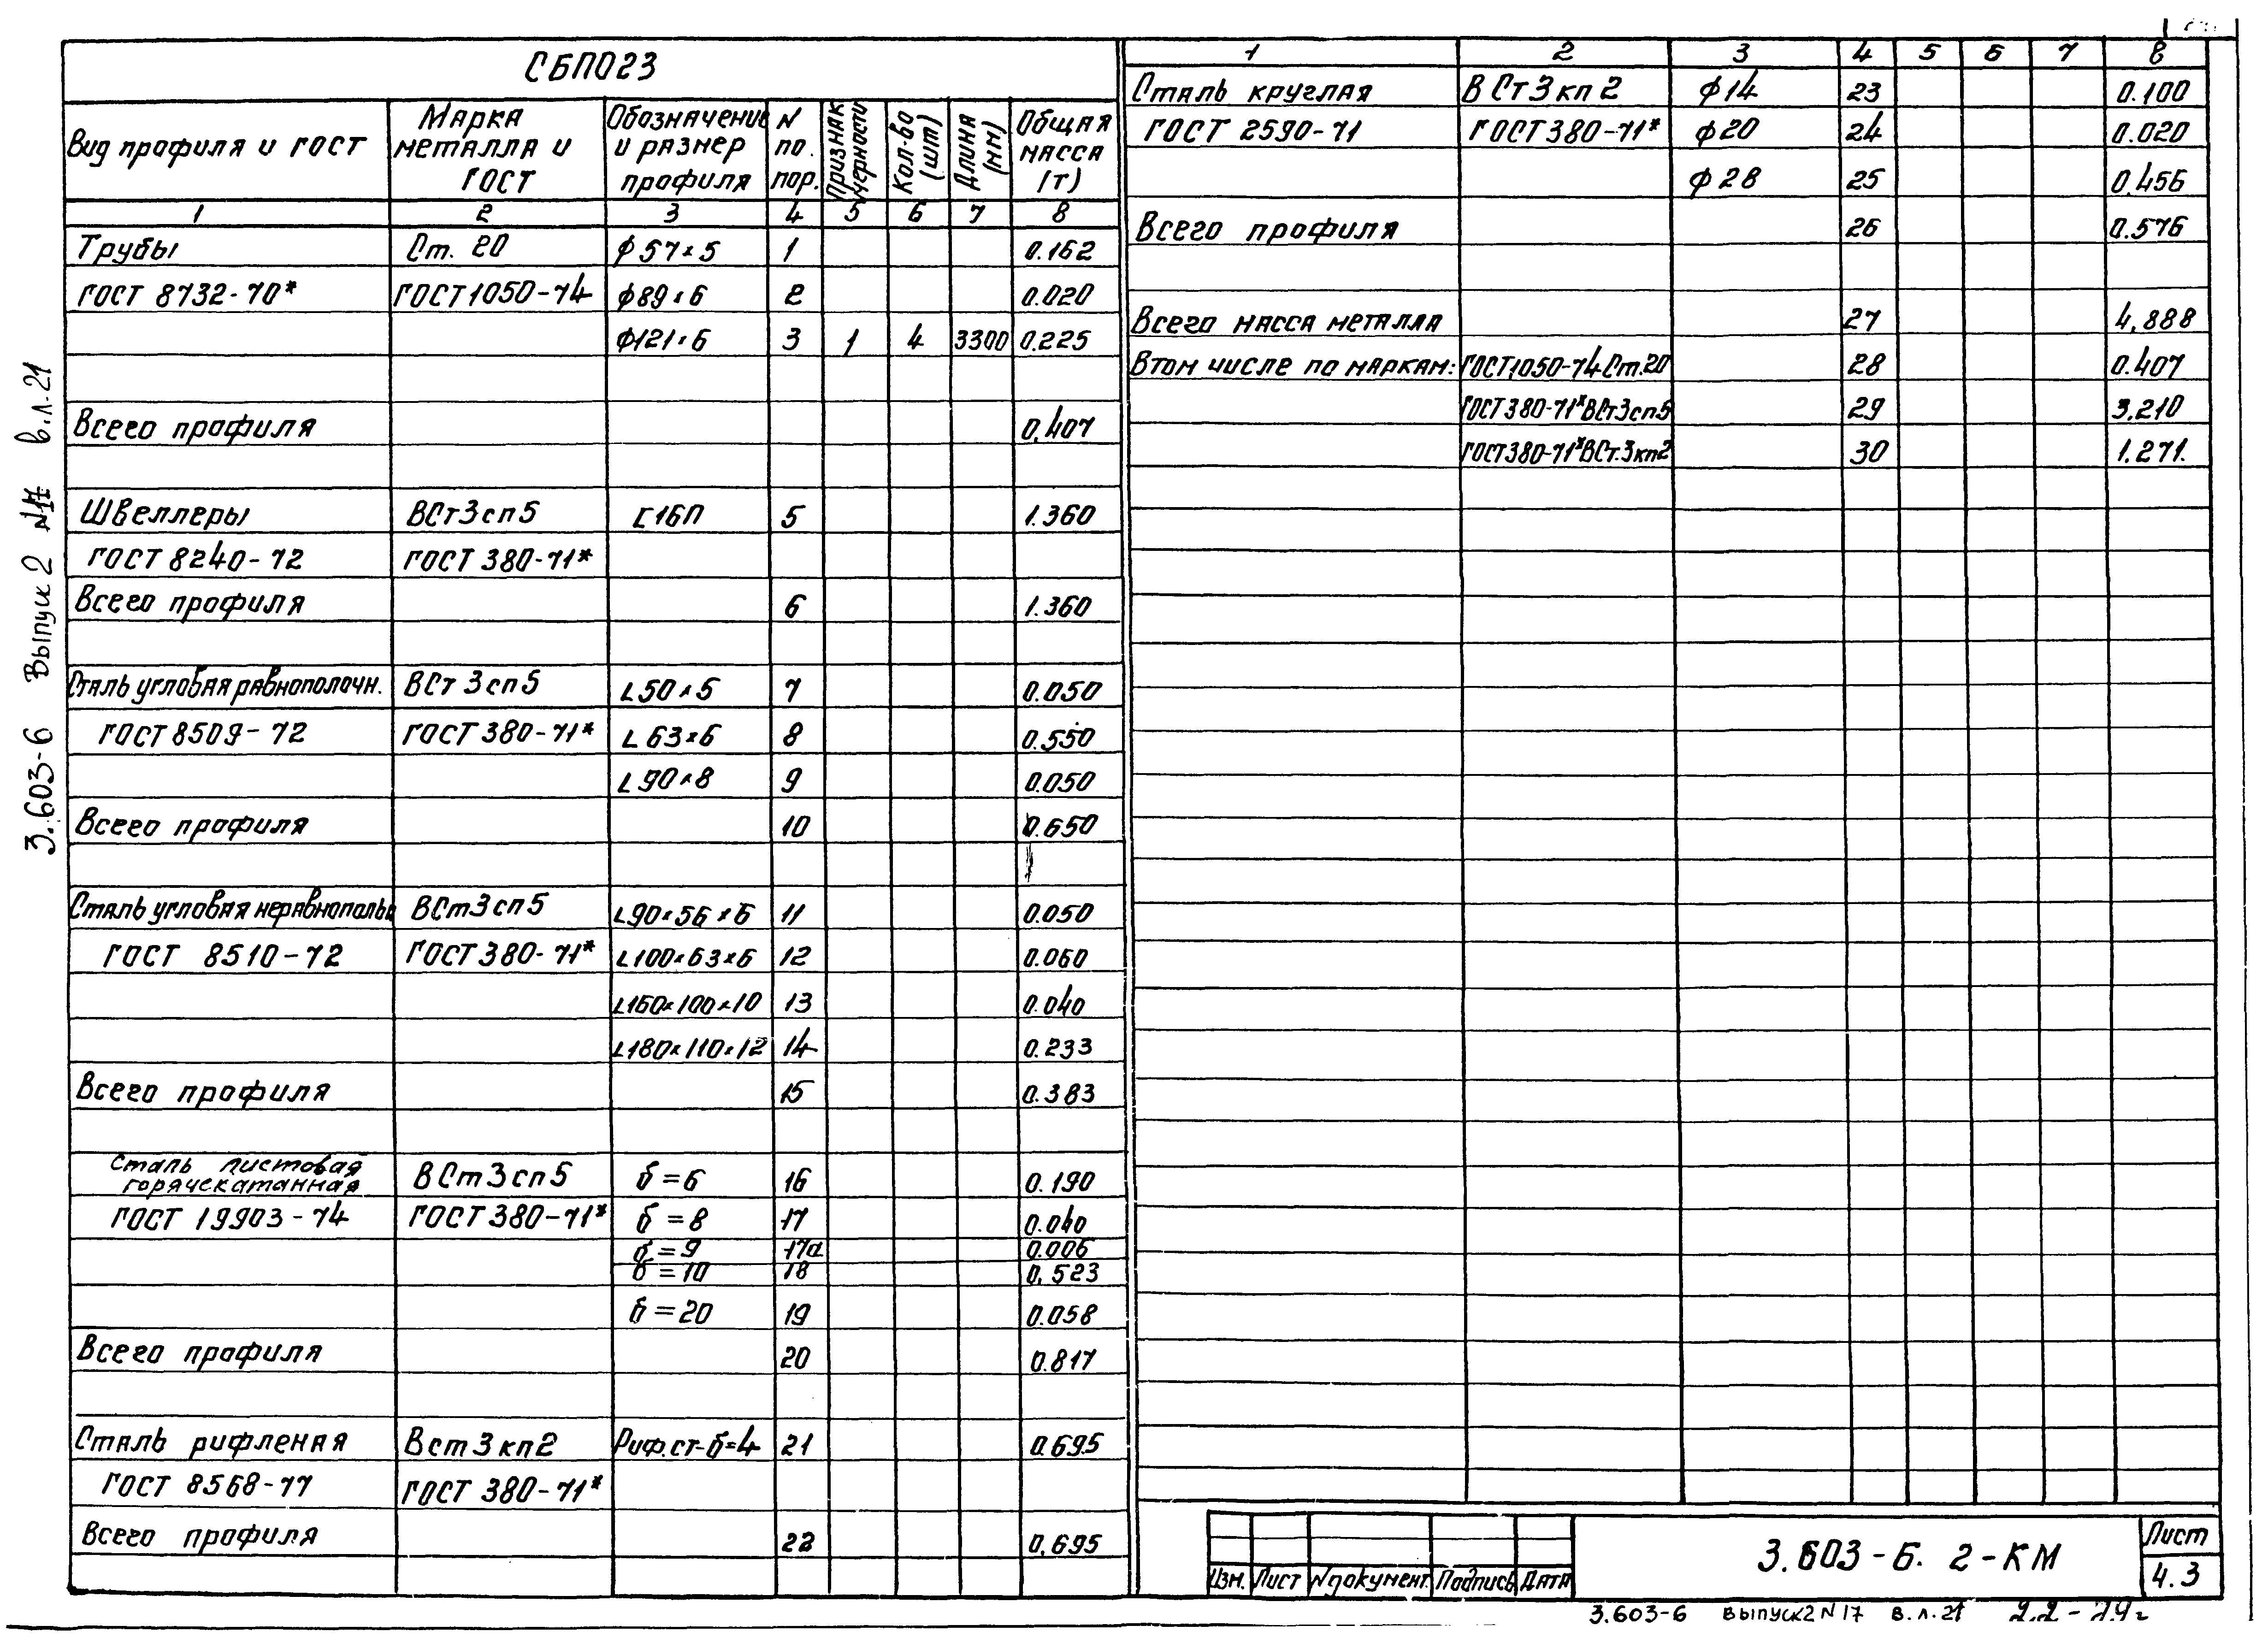 СБПО23
Вид профиля и ГОСТ | Марка металла и ГОСТ | Обозначение и размер профиля | N по. пор. | Признак мерности | Кол-во (шт) | Длина (мм) | Общая масса (т)
1 2 3 4 5 6 7 8
Трубы Ст. 20 ф57×5 1 0.162
ГОСТ 8732-70* ГОСТ1050-74 ф89×6 2 0.020
ф121×6 3 1 4 3300 0.225
Всего профиля 0.407
Швеллеры ВСт3сп5 [16П 5 1.360
ГОСТ 8240-72 ГОСТ 380-71*
Всего профиля 6 1.360
Сталь угловая равнополочн. ВСт3сп5 L50×5 7 0.050
ГОСТ 8509-72 ГОСТ 380-71* L63×6 8 0.550
L90×8 9 0.050
Всего профиля 10 0.650
Сталь угловая ВСт3сп5 L90×56×6 11 0.050
ГОСТ 8510-72 ГОСТ 380-71* L100×63×6 12 0.060
L160×100×10 13 0.040
L180×110×12 14 0.233
Всего профиля 15 0.383
Сталь листовая
горячекатанная ВСт3сп5 б=6 16 0.190
ГОСТ 19903-74 ГОСТ 380-71* б=8 17 0.040
б=9 17а 0.006
б=10 18 0.523
б=20 19 0.058
Всего профиля 20 0.817
Сталь рифленая Вст3кп2 Риф.ст-б=4 21 0.695
ГОСТ 8568-77 ГОСТ 380-71*
Всего профиля 22 0.695
1 2 3 4 5 6 7 8
Сталь круглая ВСт3кп2 ф14 23 0.100
ГОСТ 2590-71 ГОСТ380-71* ф20 24 0.020
ф28 25 0.456
Всего профиля 26 0.576
Всего масса металла 27 4.888
В том числе по маркам: ГОСТ1050-74 Ст.20 28 0.407
ГОСТ380-71* ВСт3сп5 29 3.210
ГОСТ380-71* ВСт.3кп2 30 1.271.
Изм. Лист N документ. Подпись Дата
3.603-6. 2-КМ
Лист
4.3
3.603-6 выпуск2 N17 в.л.21
3.603-6 Выпуск 2 N17 в.л.21